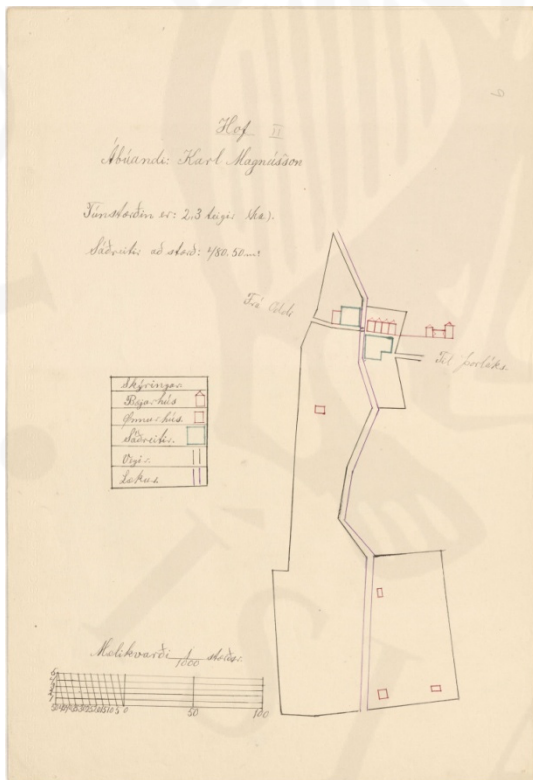 Hof II
Ábúandi: Karl Magnússon
Túnstærðin er: 2,3 teigir (ha).
Sáðreitir að stærð: 50 m²
Frá Oddi
Til Þorláks
Skýringar
Bæjarhús
Önnur hús
Sáðreitir.
Vegir.
Lækur
Mælikvarði 1/1000 stærðar.
50 0 50 100